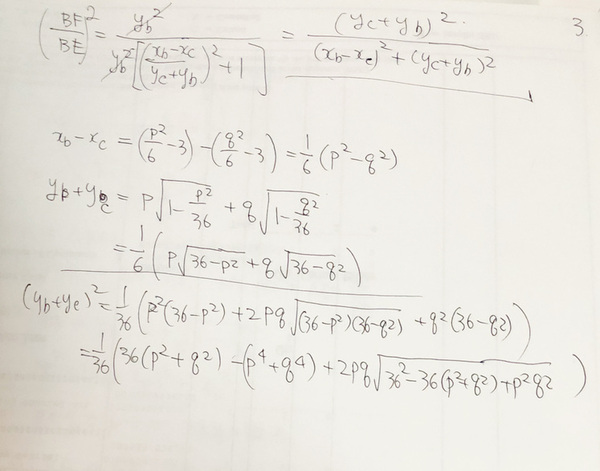 3
(BF/BE)² = y_b² / y_b²[((x_b-x_c)/(y_c+y_b))² + 1] = (y_c+y_b)² / ((x_b-x_c)² + (y_c+y_b)²)
x_b - x_c = (p²/6 - 3) - (q²/6 - 3) = 1/6 (p² - q²)
y_b + y_c = p√(1 - p²/36) + q√(1 - q²/36)
= 1/6 (p√(36-p²) + q√(36-q²))
(y_b+y_c)² = 1/36 (p²(36-p²) + 2pq√((36-p²)(36-q²)) + q²(36-q²))
= 1/36 (36(p²+q²) - (p⁴+q⁴) + 2pq√(36²-36(p²+q²)+p²q²))